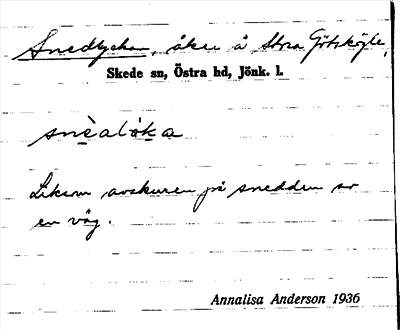 Snedlyckan, åker å Stora Götsköple,
Skede sn, Östra hd, Jönk. l.
snèalǫ́ka
Liksom avskuren på snedden av
en väg.
Annalisa Anderson 1936